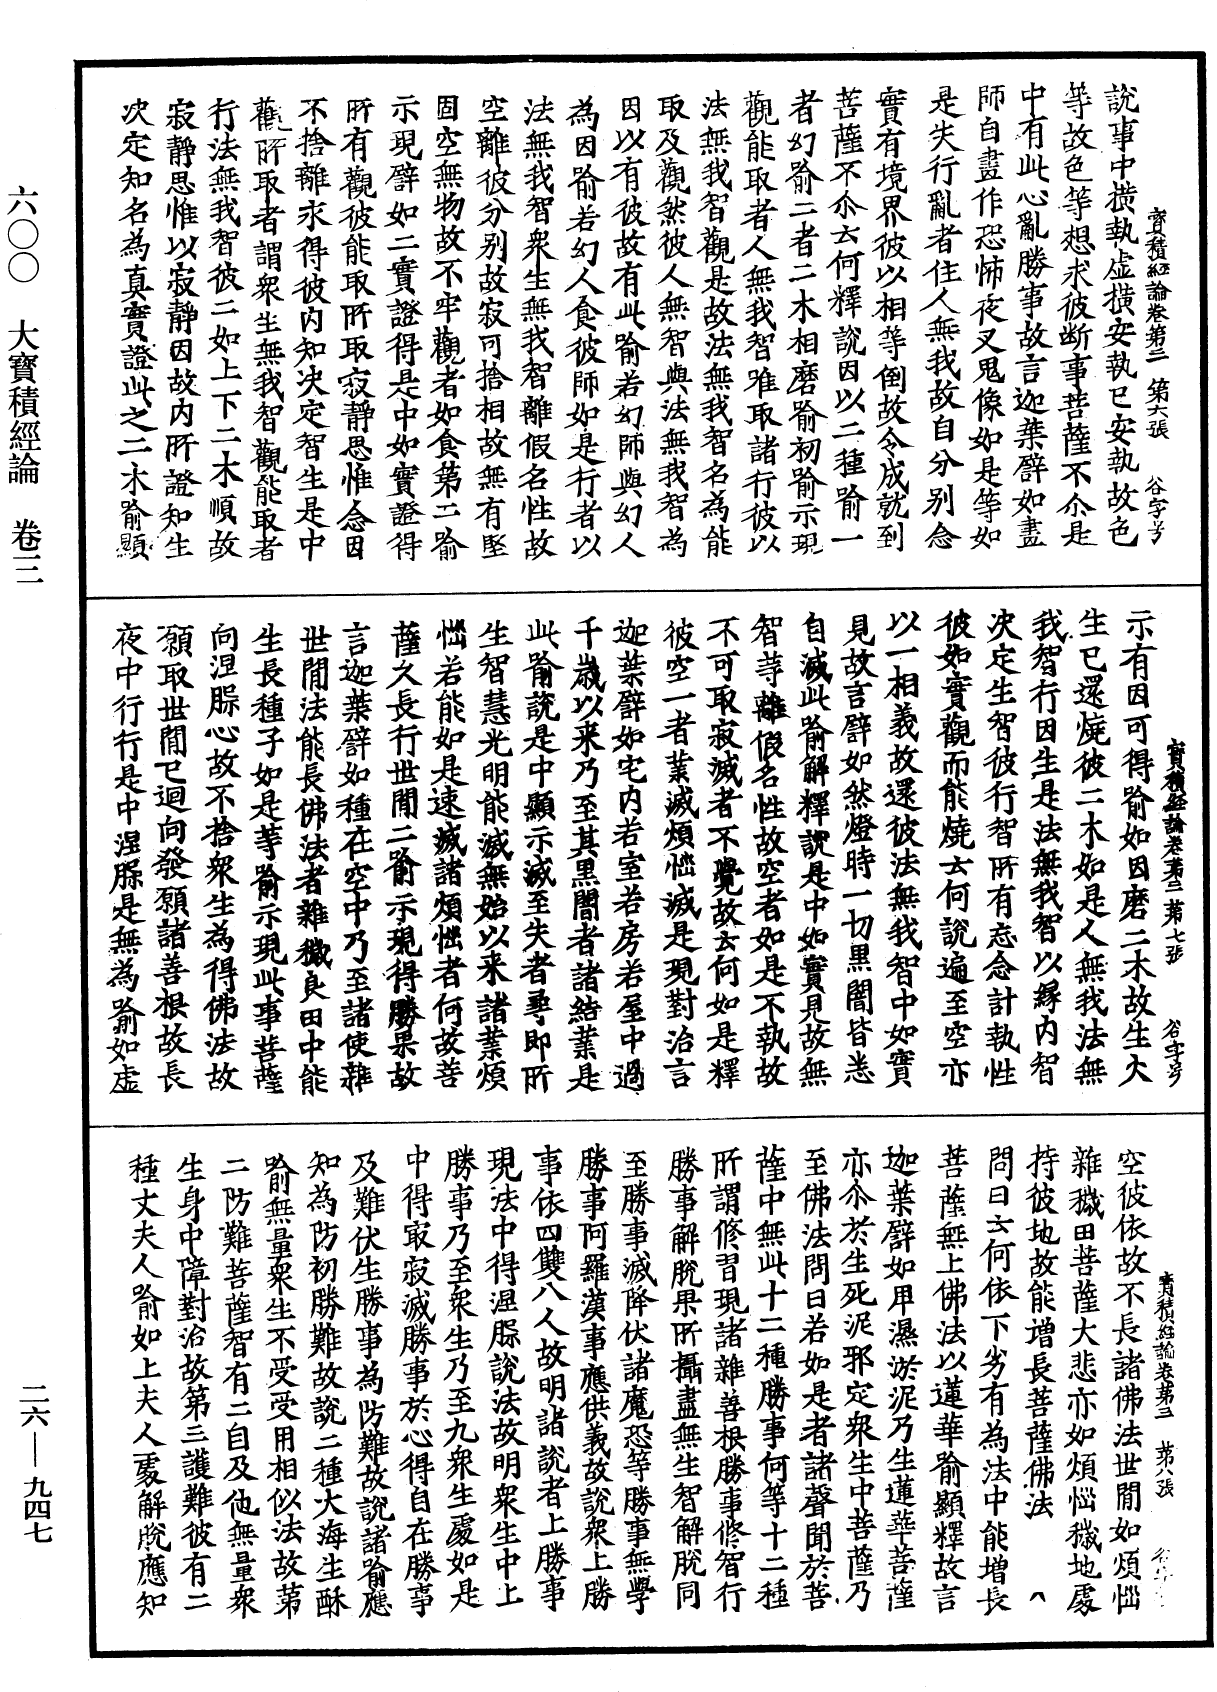 六〇〇　大寶積經論　卷三
二六—九四七
寶積經論卷第三　第六張　谷字号
說事中橫執虛橫安執已安執故色
等故色等想求彼断事菩薩不尒是
中有此心亂勝事故言迦葉譬如畫
師自畫作恐怖夜叉鬼像如是等如
是失行亂者住人無我故自分別念
實有境界彼以相等倒故令成就到
菩薩不尒云何釋說因以二種喻一
者幻喻二者二木相磨喻初喻示現
觀能取者人無我智唯取諸行彼以
法無我智觀是故法無我智名為能
取及觀然彼人無智與法無我智為
因以有彼故有此喻若幻師與幻人
為因喻若幻人食彼師如是行者以
法無我智衆生無我智離假名性故
空離彼分別故寂可捨相故無有堅
固空無物故不牢觀者如食第二喻
示現譬如二實證得是中如實證得
所有觀彼能取所取寂靜思惟念因
不捨離求得彼内知决定智生是中
觀所取者謂衆生無我智觀能取者
行法無我智彼二如上下二木順故
寂靜思惟以寂靜因故内所證知生
决定知名為真實證此之二木喻顯
寶積經論卷第三　第七張　谷字号
示有因可得喻如因磨二木故生火
生已還燒彼二木如是人無我法無
我智行因生是法無我智以緣内智
决定生智彼行智所有忘念計執性
彼如實觀而能燒云何說遍至空亦
以一相義故還彼法無我智中如實
見故言譬如然燈時一切黑闇皆悉
自滅此喻解釋說是中如實見故無
智等離假名性故空者如是不執故
不可取寂滅者不覺故云何如是釋
彼空一者業滅煩惱滅是現對治言
迦葉譬如宅内若室若房若屋中過
千歲以来乃至其黑闇者諸結業是
此喻說是中顯示滅至失者尋即所
生智慧光明能滅無始以来諸業煩
惱若能如是速滅諸煩惱者何故菩
薩久長行世間二喻示現得勝果故
言迦葉譬如種在空中乃至諸使雜
世間法能長佛法者雜穢良田中能
生長種子如是等喻示現此事菩薩
向涅膝心故不捨衆生為得佛法故
願取世間已迴向發願諸善根故長
夜中行行是中涅膝是無為喻如虛
寶積經論卷第三　第八張
空彼依故不長諸佛法世間如煩惱
雜穢田菩薩大悲亦如煩惱穢地處
持彼地故能增長菩薩佛法
問曰云何依下劣有為法中能增長
菩薩無上佛法以蓮華喻顯釋故言
迦葉譬如甲濕淤泥乃生蓮華菩薩
亦尒於生死泥邪定衆生中菩薩乃
至佛法問曰若如是者諸聲聞於菩
薩中無此十二種勝事何等十二種
所謂修習現諸雜善根勝事修智行
勝事解脫果所攝盡無生智解脫同
至勝事滅降伏諸魔恐等勝事無學
勝事阿羅漢事應供義故說衆上勝
事依四雙八人故明諸說者上勝事
現法中得涅膝說法故明衆生中上
勝事乃至衆生乃至九衆生處如是
中得寂寂滅勝事於心得自在勝事
及難伏生勝事為防難故說諸喻應
知為防初勝難故說二種大海生酥
喻無量衆生不受受用相似法故第
二防難菩薩智有二自及他無量衆
生身中障對治故第三護難彼有二
種丈夫人喻如上夫人處解脫應知